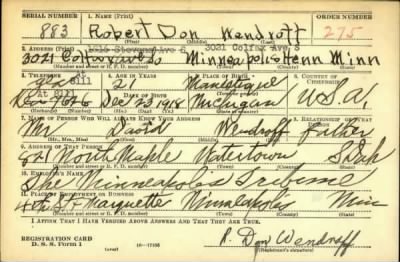 SERIAL NUMBER
1. NAME (Print)
ORDER NUMBER
883
Robert Don Wendroff
275
(First) (Middle) (Last)
2. ADDRESS (Print)
3021 Colfax Ave S
3021 Colfax Ave So Minneapolis Henn Minn
3. TELEPHONE
4. AGE IN YEARS
5. PLACE OF BIRTH
6. COUNTRY OF CITIZENSHIP
21
Manistique
Dec 23 1918
Michigan
U.S.A.
7. NAME OF PERSON WHO WILL ALWAYS KNOW YOUR ADDRESS
8. RELATIONSHIP OF THAT PERSON
Mr. David Wendroff Father
(Mr., Mrs., Miss) (First) (Middle) (Last)
9. ADDRESS OF THAT PERSON
821 North Maple Watertown S Dak
(Number and street or R. F. D. number) (Town) (County) (State)
10. EMPLOYER'S NAME
The Minneapolis Tribune
11. PLACE OF EMPLOYMENT OR BUSINESS
4th St & Marquette Minneapolis Minn
(Number and street or R. F. D. number) (Town) (County) (State)
I AFFIRM THAT I HAVE VERIFIED ABOVE ANSWERS AND THAT THEY ARE TRUE.
REGISTRATION CARD
D. S. S. Form 1
16—17105
R. Don Wendroff
(Registrant's signature)